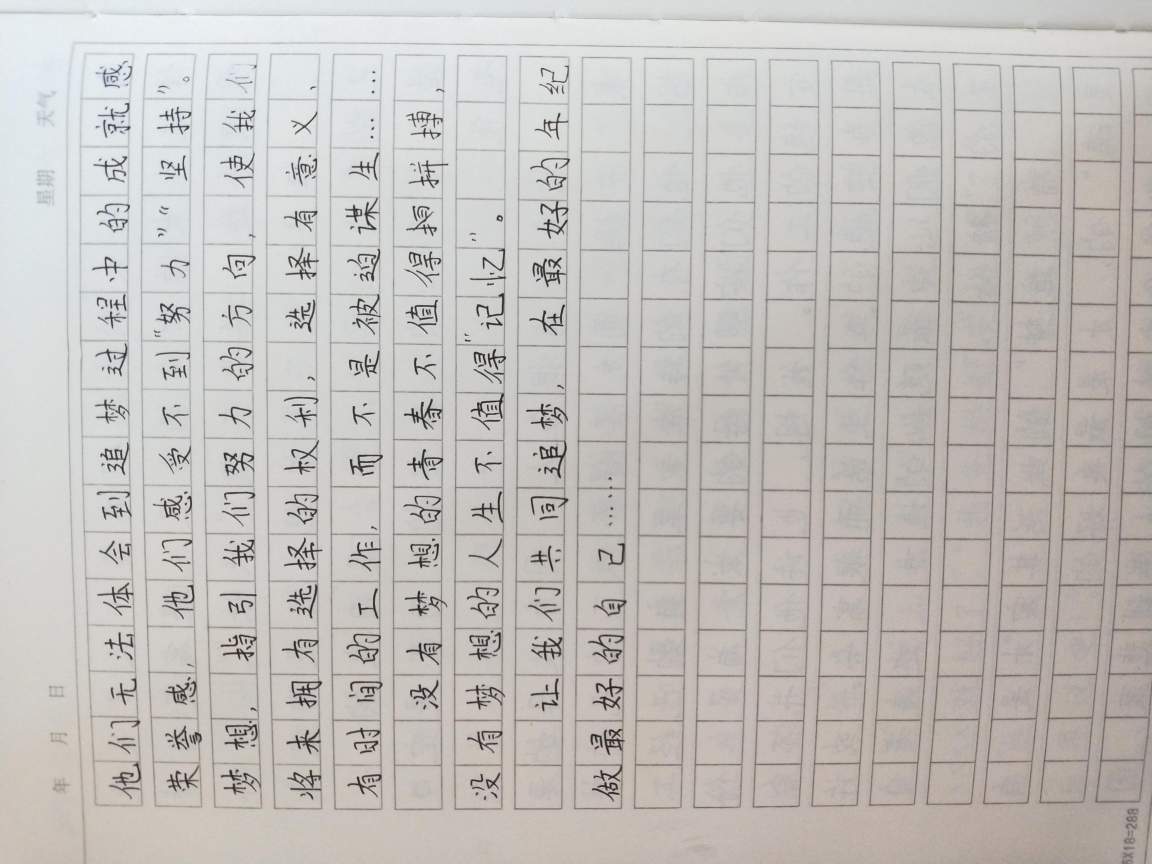 年 月 日 星期 天气
他们无法体会到追梦过程中的成就感
荣誉感,他们感受不到“努力”“坚持”。
梦想,指引我们努力的方向,使我们
将来拥有选择的权利,选择有意义、
有时间的工作,而不是被迫谋生……
没有梦想的青春不值得拼搏,
没有梦想的人生不值得“记忆”。
让我们共同追梦,在最好的年纪
做最好的自己……
6X18=288